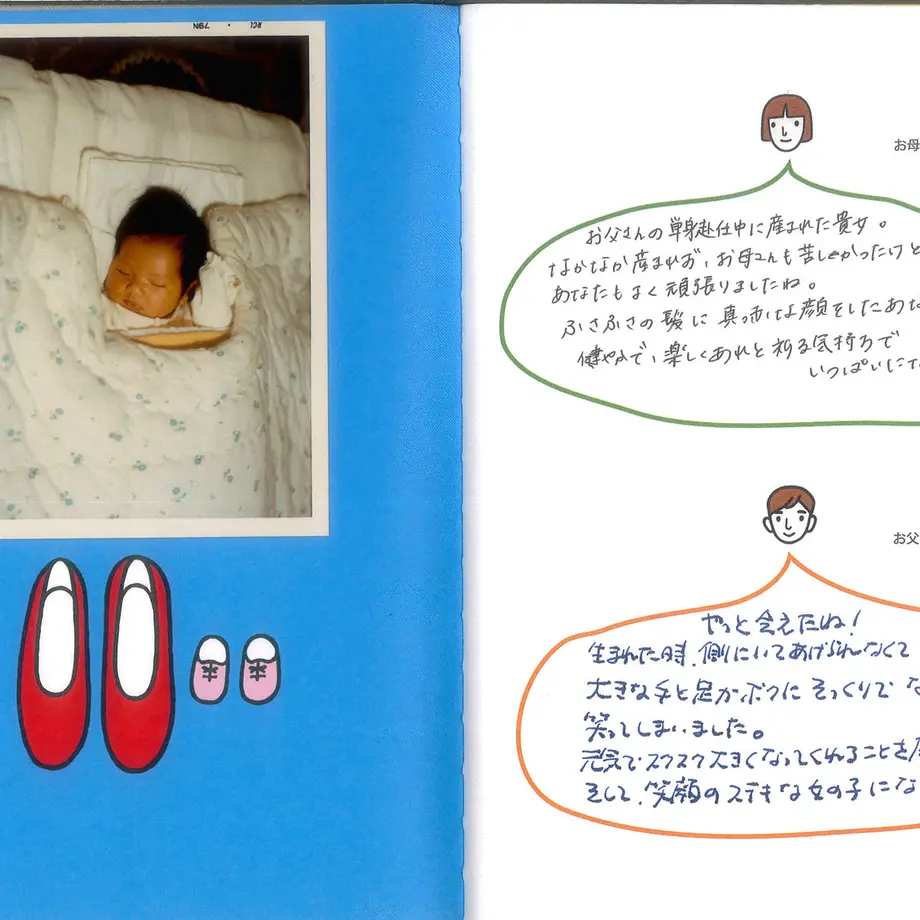 お母
お父さんの単身赴任中に産まれた貴女。
なかなか産まれず、お母さんも苦しかったけど
あなたもよく頑張りましたね。
ふさふさの髪に真っ赤な顔をしたあな
健やかで、楽しくあれと祈る気持ちで
いっぱいにな
お父
やっと会えたね!
生まれた時、側にいてあげられなくて
大きな手と足がボクにそっくりで
笑ってしまいました。
元気でスクスク大きくなってくれることを
そして、笑顔のステキな女の子にな